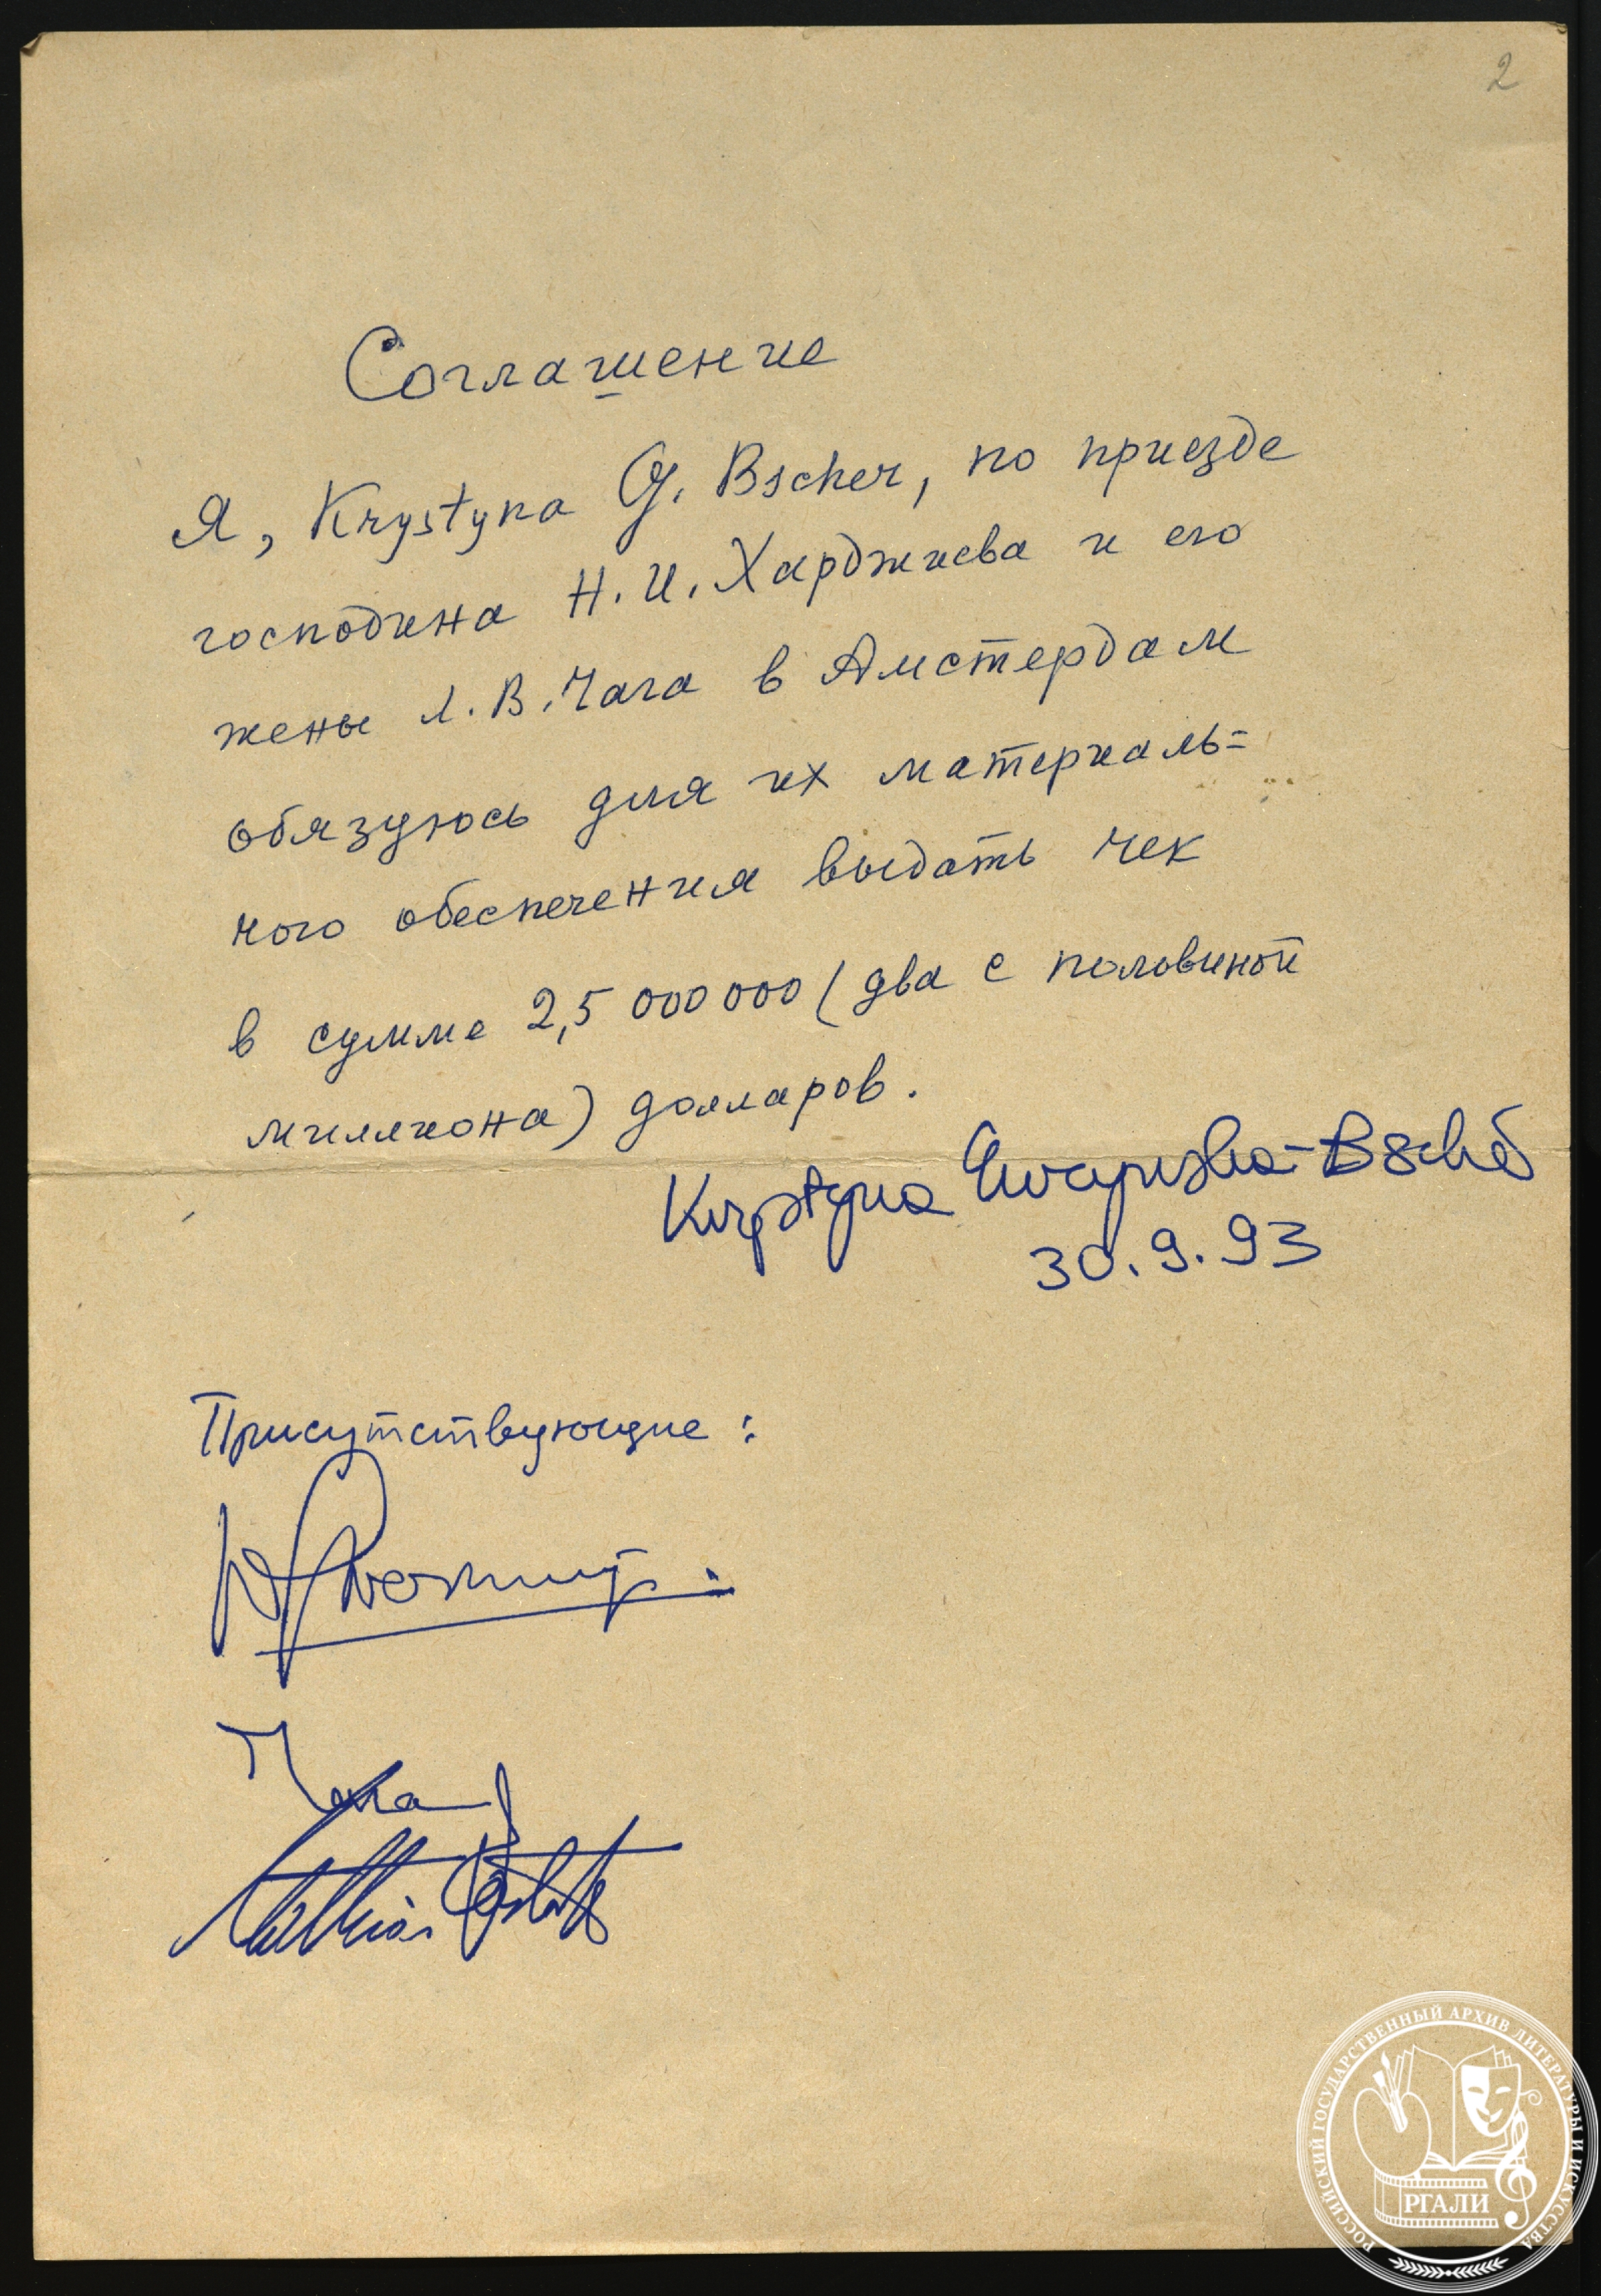 2
Соглашение
Я, Krystyna G. Bscher, по приезде
господина Н. И. Харджиева и его
жены Л. В. Чага в Амстердам
обязуюсь для их материаль=
ного обеспечения выдать чек
в сумме 2,5 000 000 (два с половиной
миллиона) долларов.
Krystyna
30.9.93
Присутствующие:
РОССИЙСКИЙ ГОСУДАРСТВЕННЫЙ АРХИВ ЛИТЕРАТУРЫ И ИСКУССТВА
РГАЛИ